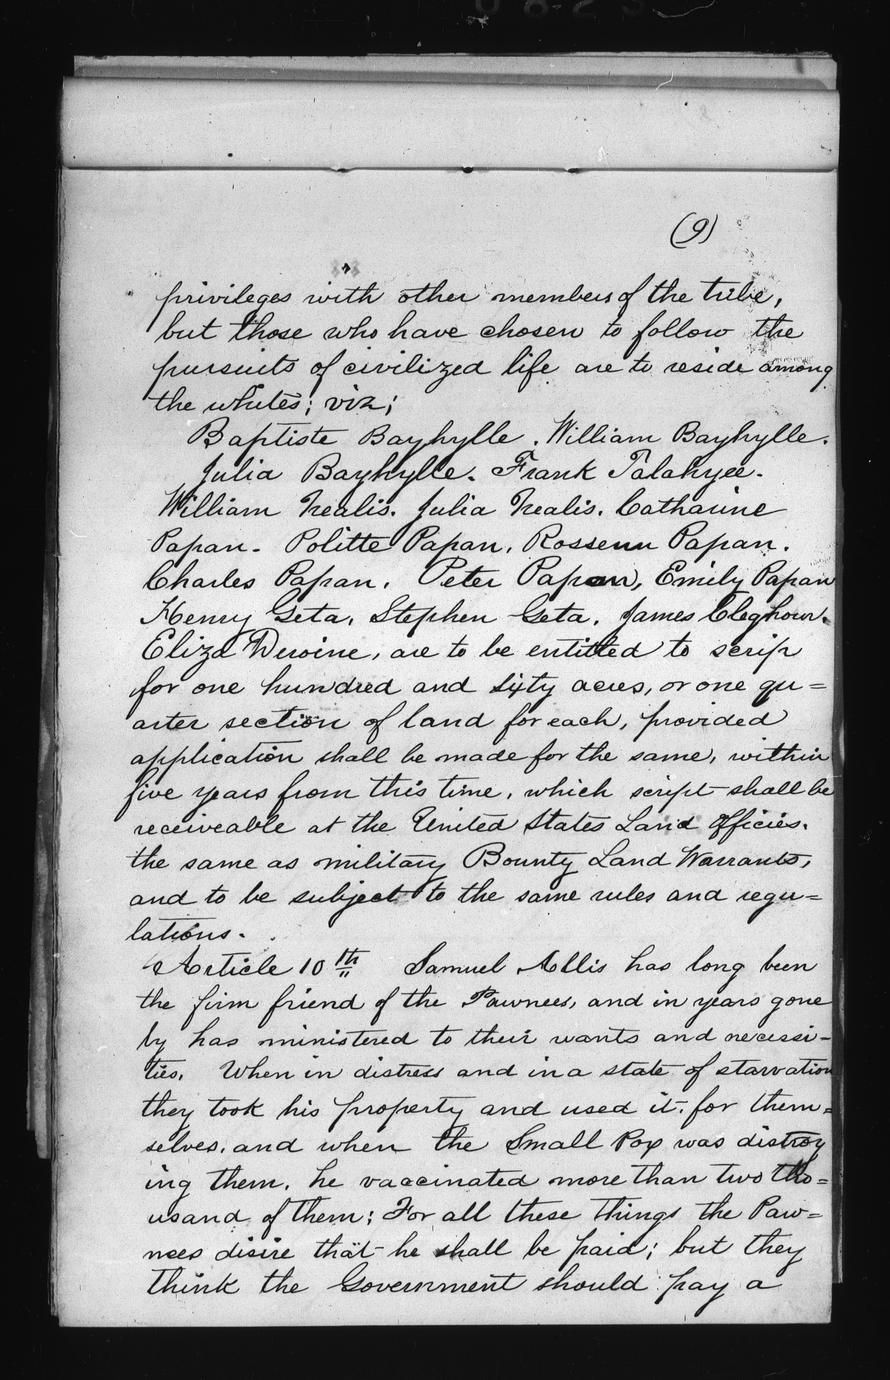 (9)
privileges with other members of the tribe,
but those who have chosen to follow the
pursuits of civilized life are to reside among
the whites; viz;
Baptiste Bayhylle, William Bayhylle.
Julia Bayhylle. Frank Talahyee.
William Nealis. Julia Nealis. Catharine
Papan. Politte Papan, Rossenu Papan.
Charles Papan. Peter Papan, Emily Papan
Henry Geta, Stephen Geta. James Cleghour.
Eliza Deroine, are to be entitled to scrip
for one hundred and sixty acres, or one qu=
arter section of land for each, provided
application shall be made for the same, within
five years from this time, which script shall be
receiveable at the United States Land Officies.
the same as military Bounty Land Warrants,
and to be subject to the same rules and regu=
lations.
Article 10th Samuel Allis has long been
the firm friend of the Pawnees, and in years gone
by has ministered to their wants and necessi-
ties. When in distress and in a state of starvation
they took his property and used it for them=
selves, and when the Small Pox was distroy
ing them, he vaccinated more than two tho=
usand of them; For all these things the Paw=
nees disire that he shall be paid; but they
think the Government should pay a